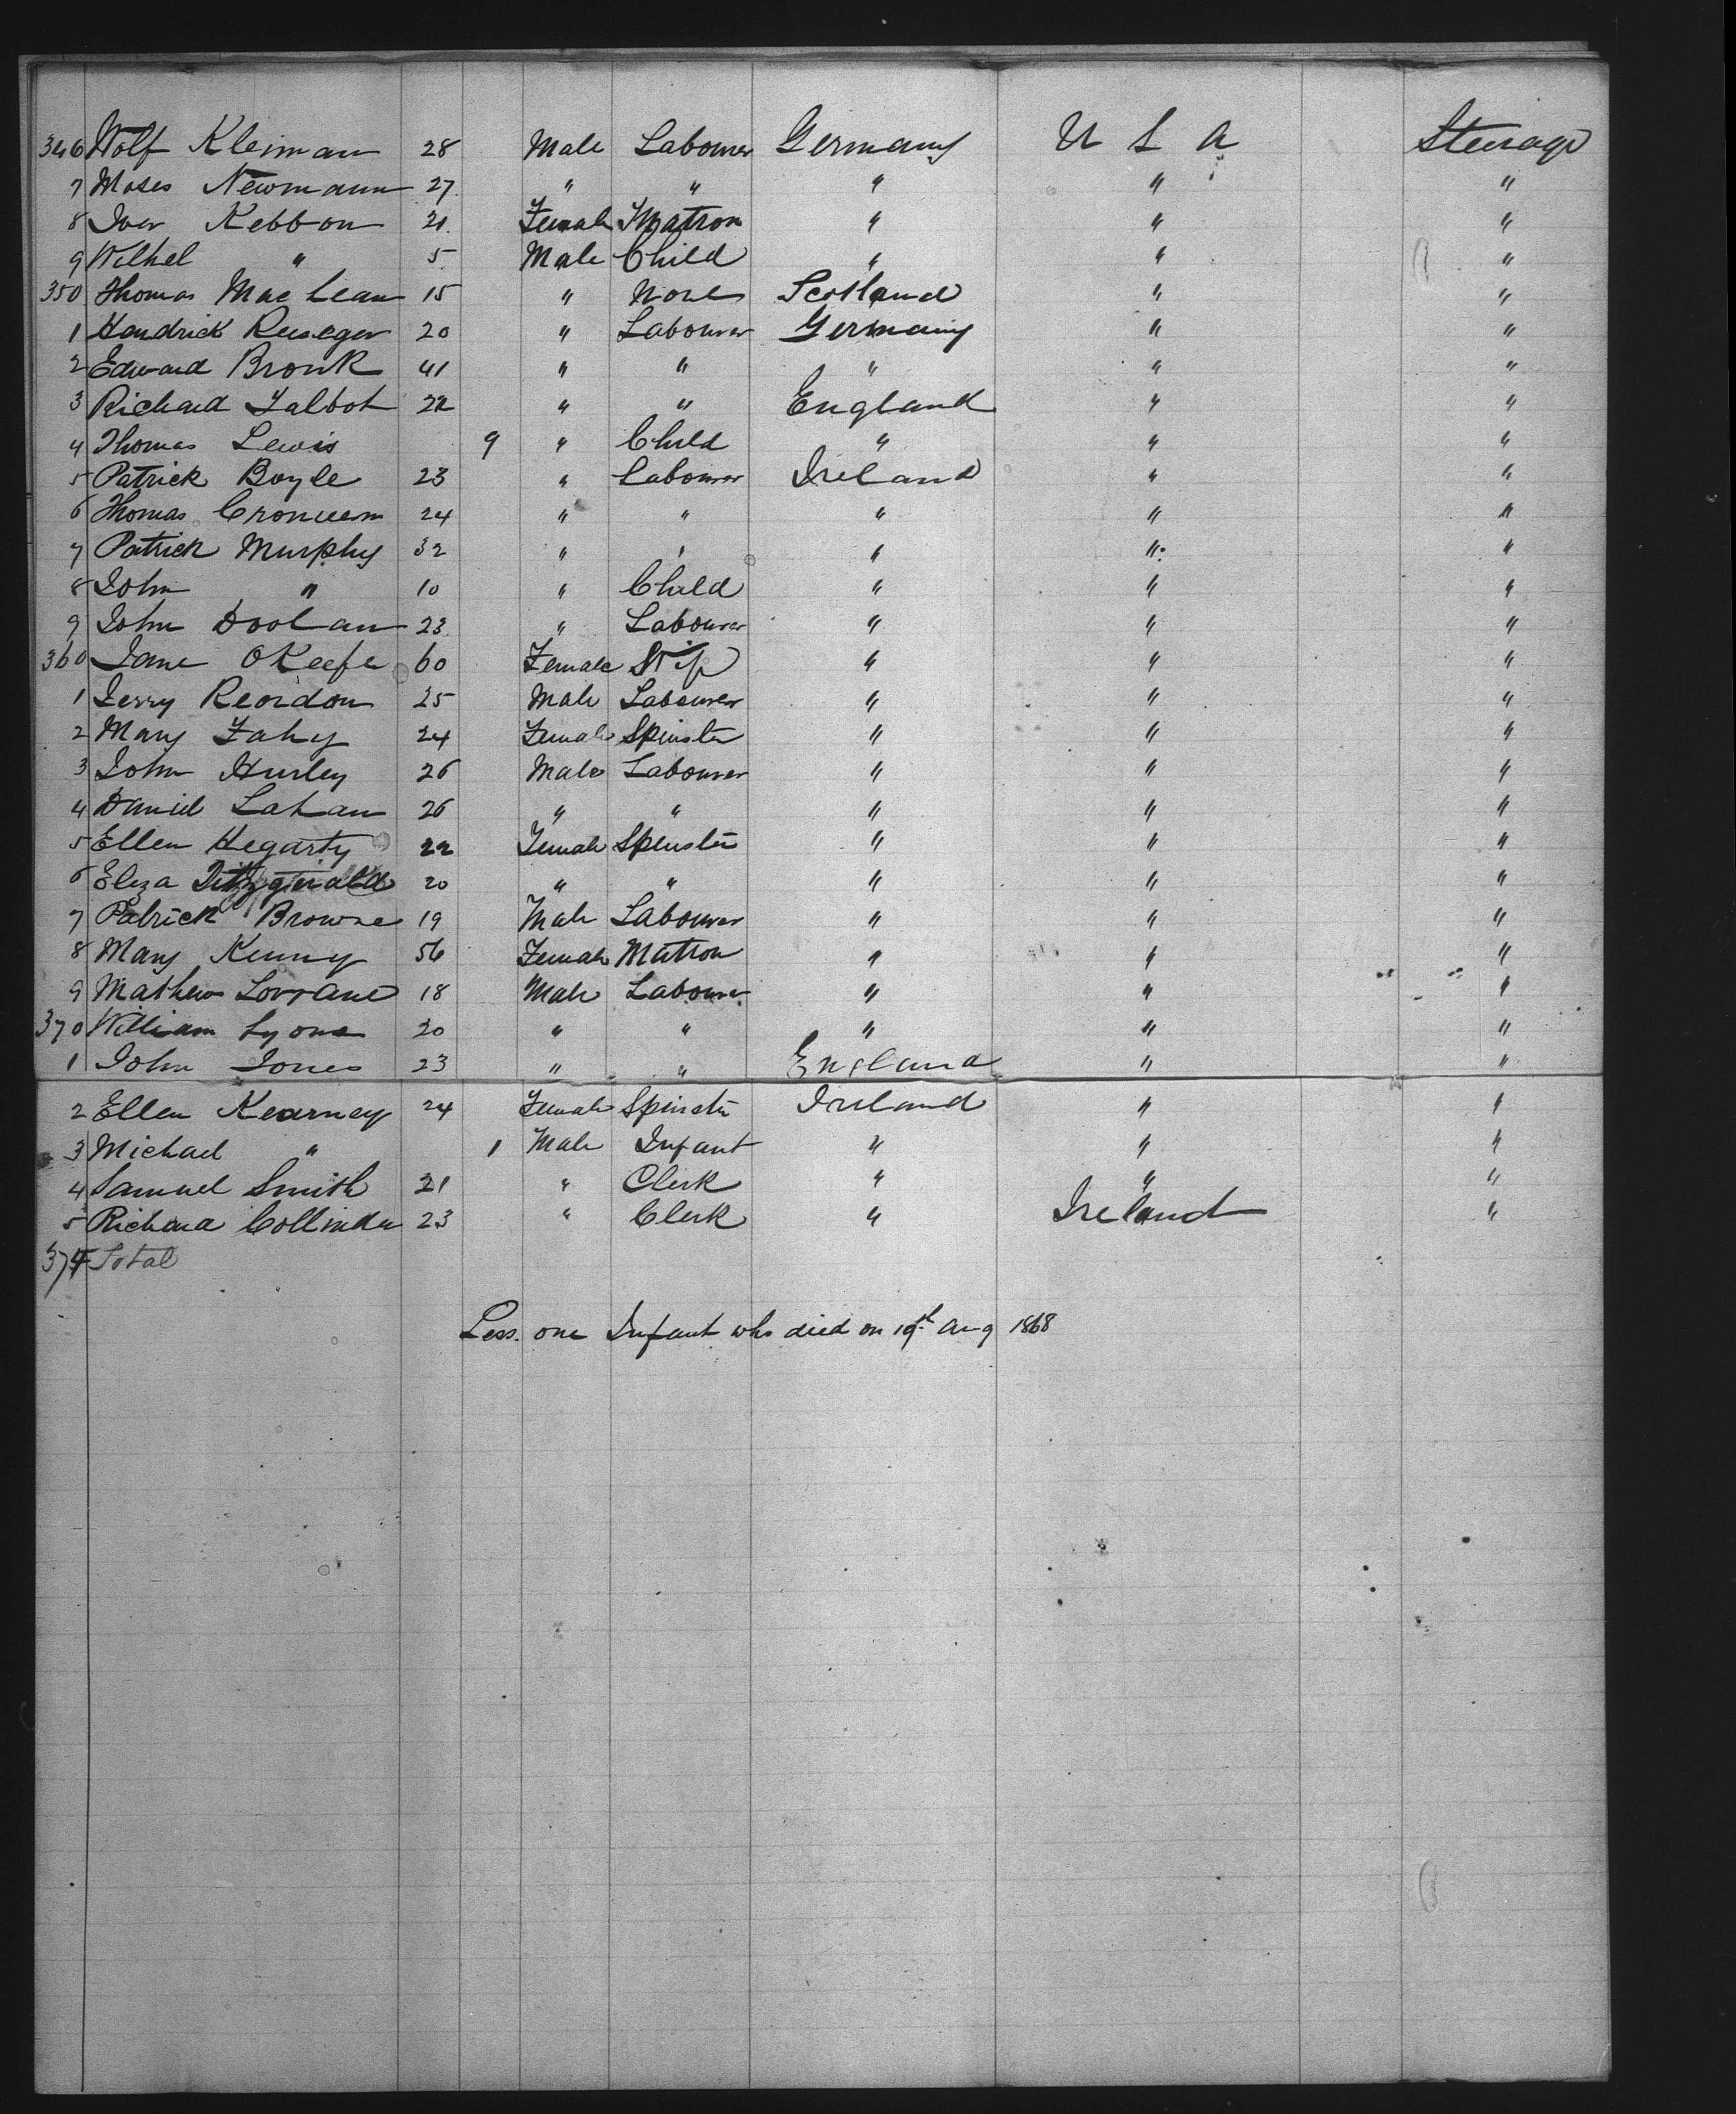 346 Wolf Kleiman 28 Male Labourer Germany U S A Steerage
7 Moses Newmann 27 " " " " "
8 Iver Kebbon 21 Female Matron " " "
9 Wilhel " 5 Male Child " " "
350 Thomas MacLean 15 " None Scotland " "
1 Hendrick Ruseger 20 " Labourer Germany " "
2 Edward Bronk 41 " " " " "
3 Richard Talbot 22 " " England " "
4 Thomas Lewis 9 " Child " " "
5 Patrick Boyle 23 " Labourer Ireland " "
6 Thomas 24 " " " " "
7 Patrick Murphy 32 " " " " "
8 John " 10 " Child " " "
9 John Doolan 23 " Labourer " " "
360 Jane OKeefe 60 Female " " "
1 Jerry Reordon 25 Male Labourer " " "
2 Mary Fahy 24 Female Spinster " " "
3 John Hurley 26 Male Labourer " " "
4 Daniel Lahan 26 " " " " "
5 Ellen Hegarty 22 Female Spinster " " "
6 Eliza Fitzgerald 20 " " " " "
7 Patrick Browne 19 Male Labourer " " "
8 Mary Kenny 56 Female Matron " " "
9 Mathew Lorrane 18 Male Labourer " " "
370 William Lyons 20 " " " " "
1 John Jones 23 " " England " "
2 Ellen Kearney 24 Female Spinster Ireland " "
3 Michael " 1 Male Infant " " "
4 Samuel Smith 21 " Clerk " " "
5 Richard Collinder 23 " Clerk " Ireland "
374 Total
Less. one Infant who died on 19th Aug 1868